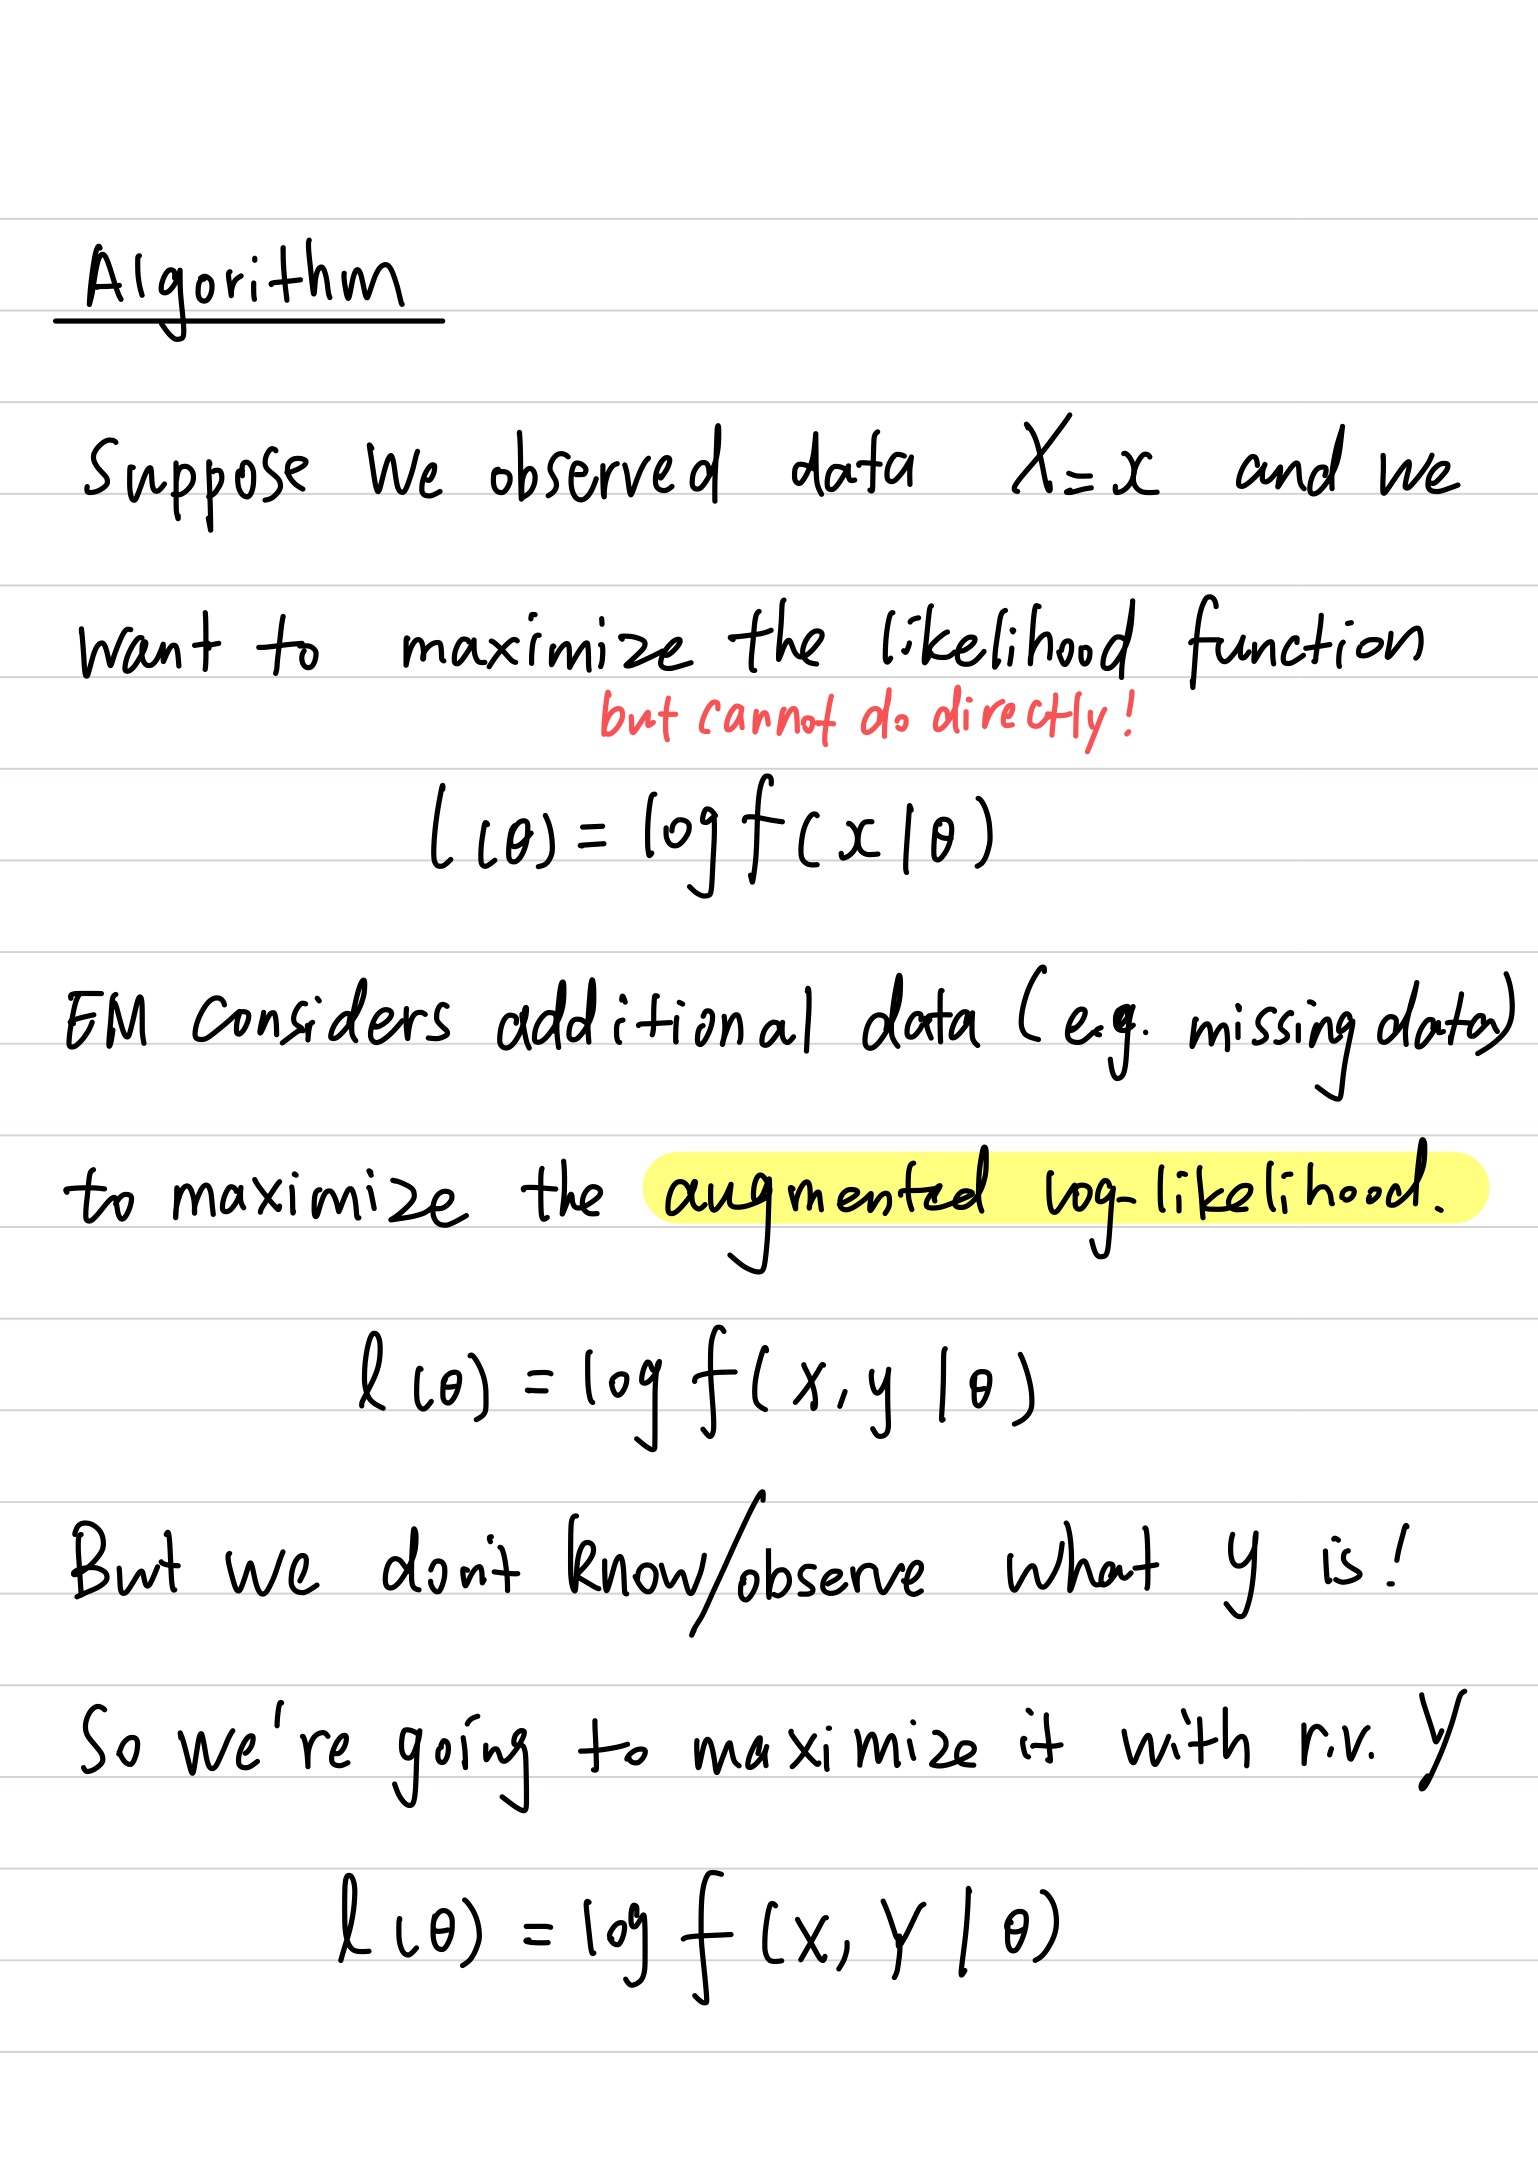 Algorithm
Suppose we observed data X=x and we
want to maximize the likelihood function
but cannot do directly!
l(θ) = log f(x|θ)
EM considers additional data (e.g. missing data)
to maximize the augmented log-likelihood.
l(θ) = log f(x, y | θ)
But we don't know/observe what y is!
So we're going to maximize it with r.v. Y
l(θ) = log f(x, Y | θ)